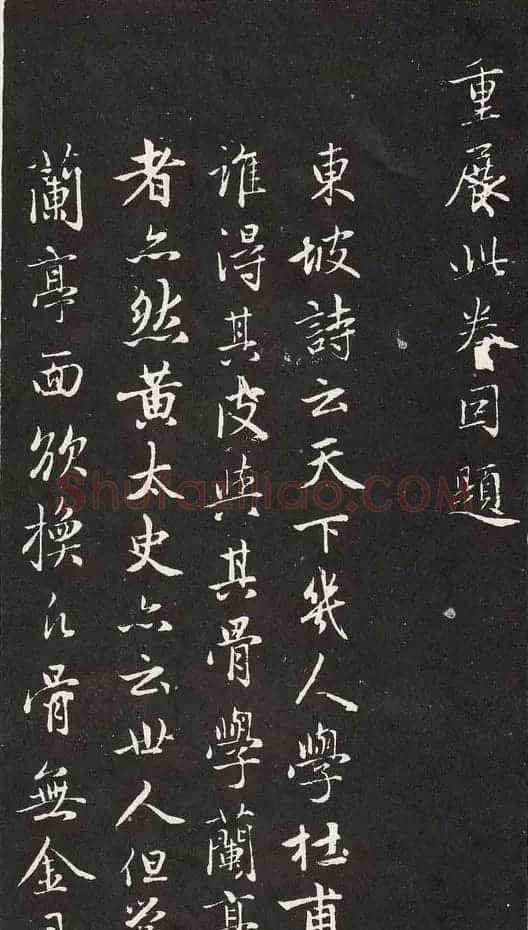 重展此卷因題
東坡詩云天下幾人學杜甫
誰得其皮與其骨學蘭亭
者亦然黃太史亦云世人但學
蘭亭面欲換凡骨無金丹
Shufaziliao.COM